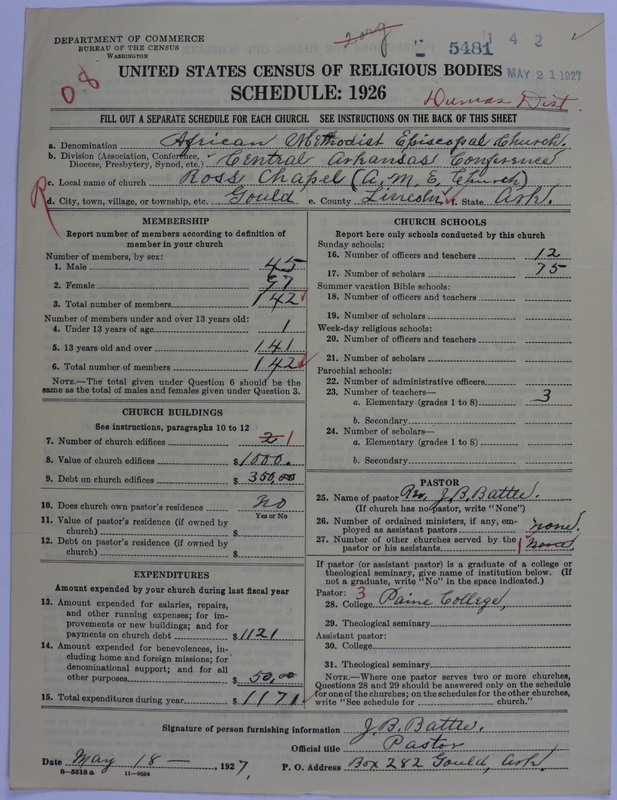 DEPARTMENT OF COMMERCE
BUREAU OF THE CENSUS
WASHINGTON
5481
1 4 2
MAY 21 1927
UNITED STATES CENSUS OF RELIGIOUS BODIES
SCHEDULE: 1926
Dumas Dist.
FILL OUT A SEPARATE SCHEDULE FOR EACH CHURCH. SEE INSTRUCTIONS ON THE BACK OF THIS SHEET
a. Denomination African Methodist Episcopal Church.
b. Division (Association, Conference, Diocese, Presbytery, Synod, etc.) Central Arkansas Conference
c. Local name of church Ross Chapel (A. M. E. Church)
d. City, town, village, or township, etc. Gould e. County Lincoln f. State Ark.
MEMBERSHIP
Report number of members according to definition of
member in your church
Number of members, by sex:
1. Male 45
2. Female 97
3. Total number of members 142
Number of members under and over 13 years old:
4. Under 13 years of age 1
5. 13 years old and over 141
6. Total number of members 142
NOTE.—The total given under Question 6 should be the
same as the total of males and females given under Question 3.
CHURCH BUILDINGS
See instructions, paragraphs 10 to 12
7. Number of church edifices 2 1
8. Value of church edifices $1000.
9. Debt on church edifices $350.00
10. Does church own pastor's residence? No
Yes or No
11. Value of pastor's residence (if owned by
church) $
12. Debt on pastor's residence (if owned by
church) $
EXPENDITURES
Amount expended by your church during last fiscal year
13. Amount expended for salaries, repairs,
and other running expenses; for im-
provements or new buildings; and for
payments on church debt $1121
14. Amount expended for benevolences, in-
cluding home and foreign missions; for
denominational support; and for all
other purposes $50.00
15. Total expenditures during year $1171
CHURCH SCHOOLS
Report here only schools conducted by this church
Sunday schools:
16. Number of officers and teachers 12
17. Number of scholars 75
Summer vacation Bible schools:
18. Number of officers and teachers
19. Number of scholars
Week-day religious schools:
20. Number of officers and teachers
21. Number of scholars
Parochial schools:
22. Number of administrative officers
23. Number of teachers—
a. Elementary (grades 1 to 8) 3
b. Secondary
24. Number of scholars—
a. Elementary (grades 1 to 8)
b. Secondary
PASTOR
25. Name of pastor Rev. J. B. Battle.
(If church has no pastor, write "None")
26. Number of ordained ministers, if any, em-
ployed as assistant pastors none.
27. Number of other churches served by the
pastor or his assistants 1 None
If pastor (or assistant pastor) is a graduate of a college or
theological seminary, give name of institution below. (If
not a graduate, write "No" in the space indicated.)
Pastor: 3
28. College Paine College,
29. Theological seminary
Assistant pastor:
30. College
31. Theological seminary
NOTE.—Where one pastor serves two or more churches,
Questions 28 and 29 should be answered only on the schedule
for one of the churches; on the schedules for the other churches,
write "See schedule for church."
Signature of person furnishing information J. B. Battle.
Official title Pastor
Date May 18 —, 1927. P. O. Address Box 282 Gould, Ark.
8—5518 a 11—9554